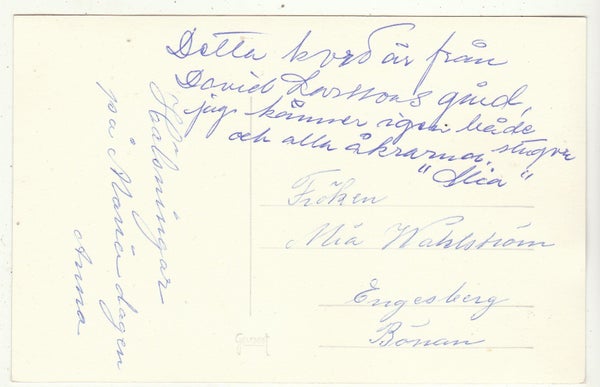 Detta kort är från
David Larssons gård,
jag känner igen både
stugor
och alla åkrarna.
"Mia"
Hälsningar
på Maria dagen
Anna
Fröken
Mia Wahlström
Engesberg
Bönan
Gevaert